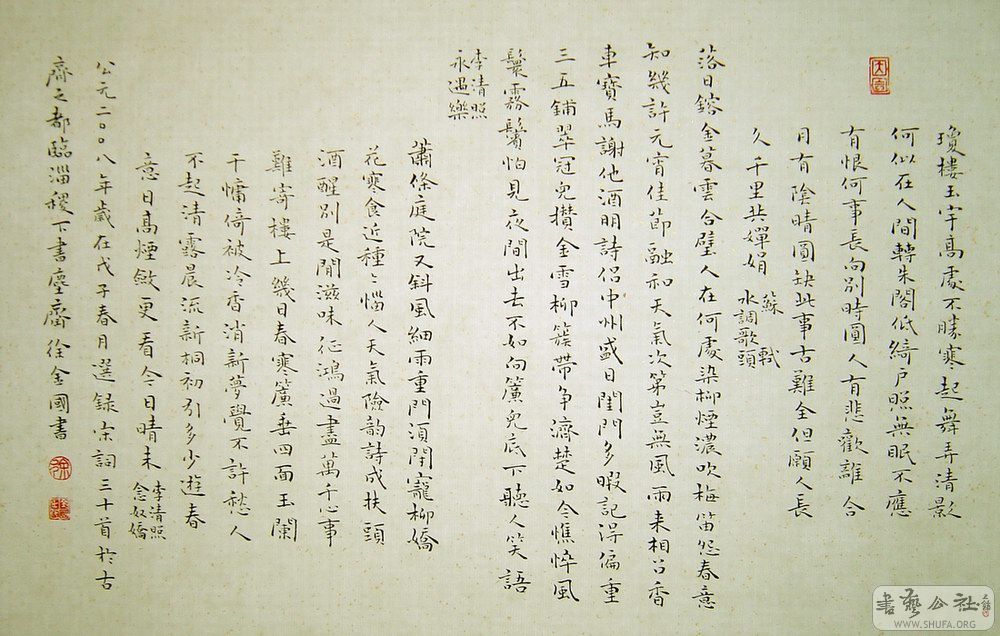 瓊樓玉宇高處不勝寒起舞弄清影
何似在人間轉朱閣低綺戶照無眠不應
有恨何事長向別時圓人有悲歡離合
月有陰晴圓缺此事古難全但願人長
久千里共嬋娟
蘇軾
水調歌頭
落日鎔金暮雲合璧人在何處染柳煙濃吹梅笛怨春意
知幾許元宵佳節融和天氣次第豈無風雨来相召香
車寶馬謝他酒朋詩侶中州盛日閨門多暇記得偏重
三五鋪翠冠兒撚金雪柳簇帶爭濟楚如今憔悴風
鬟霧鬢怕見夜間出去不如向簾兒底下聽人笑語
李清照
永遇樂
蕭條庭院又斜風細雨重門須閉寵柳嬌
花寒食近種種惱人天氣險韵詩成扶頭
酒醒別是閒滋味征鴻過盡萬千心事
難寄樓上幾日春寒簾垂四面玉闌
干慵倚被冷香消新夢覺不許愁人
不起清露晨流新桐初引多少遊春
意日高煙斂更看今日晴未
李清照
念奴嬌
公元二〇〇八年歲在戊子春月選録宋詞三十首於古
齊之都臨淄稷下書塵齋徐金國書
書藝公社
WWW.SHUFA.ORG